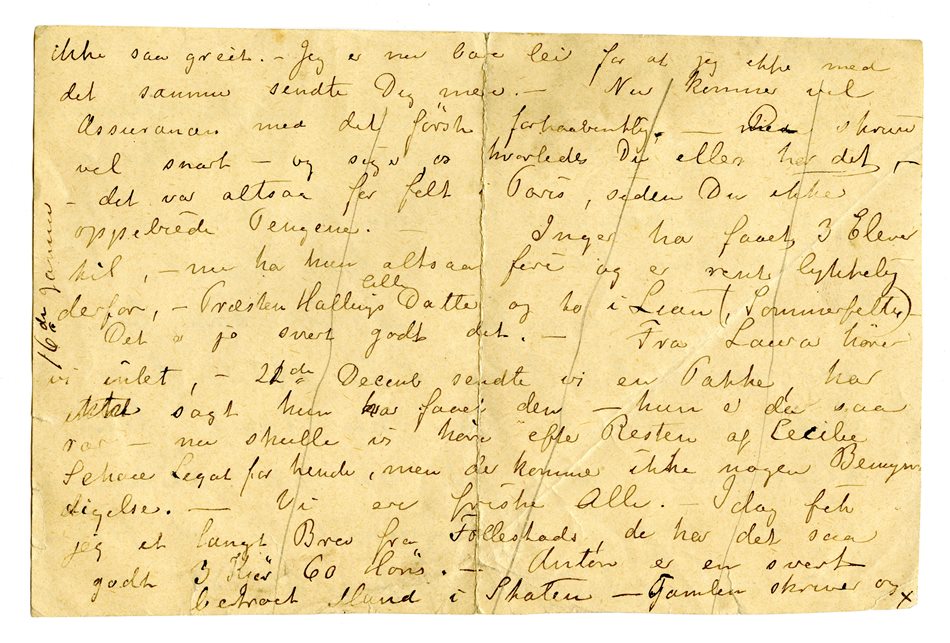 ikke saa greit. – Jeg er nu bare lei for at jeg ikke med
det samme sendte Dig mer. – Nu kommer vel
Assurancen med det første forhaabentlig. – skriver
vel snart – og siger os hvorledes Du eller har det, –
– det var altsaa fejlt i Paris, siden Du ikke
oppebiede Pengene. – Inger har faaet 3 Elever
til, – nu har hun altsaa fire og er rent lykkelig
derfor, – Præsten Hallings lille Datter og to i Lian (Sommerfeldts) –
Det er jo svert godt det. – Fra Laura hører
vi intet, – 22de Decemb sendte vi en Pakke, har
ikke sagt hun har faaet den – hun er da saa
rar – nu skulle vi høre efter Resten af Cecilie
Schous Legat for hende, men der kommer ikke nogen Bemyn-
digelse. – Vi ere friske Alle. – Idag fik
jeg et langt Brev fra Follestads, de har det saa
godt 3 Kiør 60 Høns. – Anton er en svert
betroet Mand i Skolen – Gamlen skriver og x
16de Januar